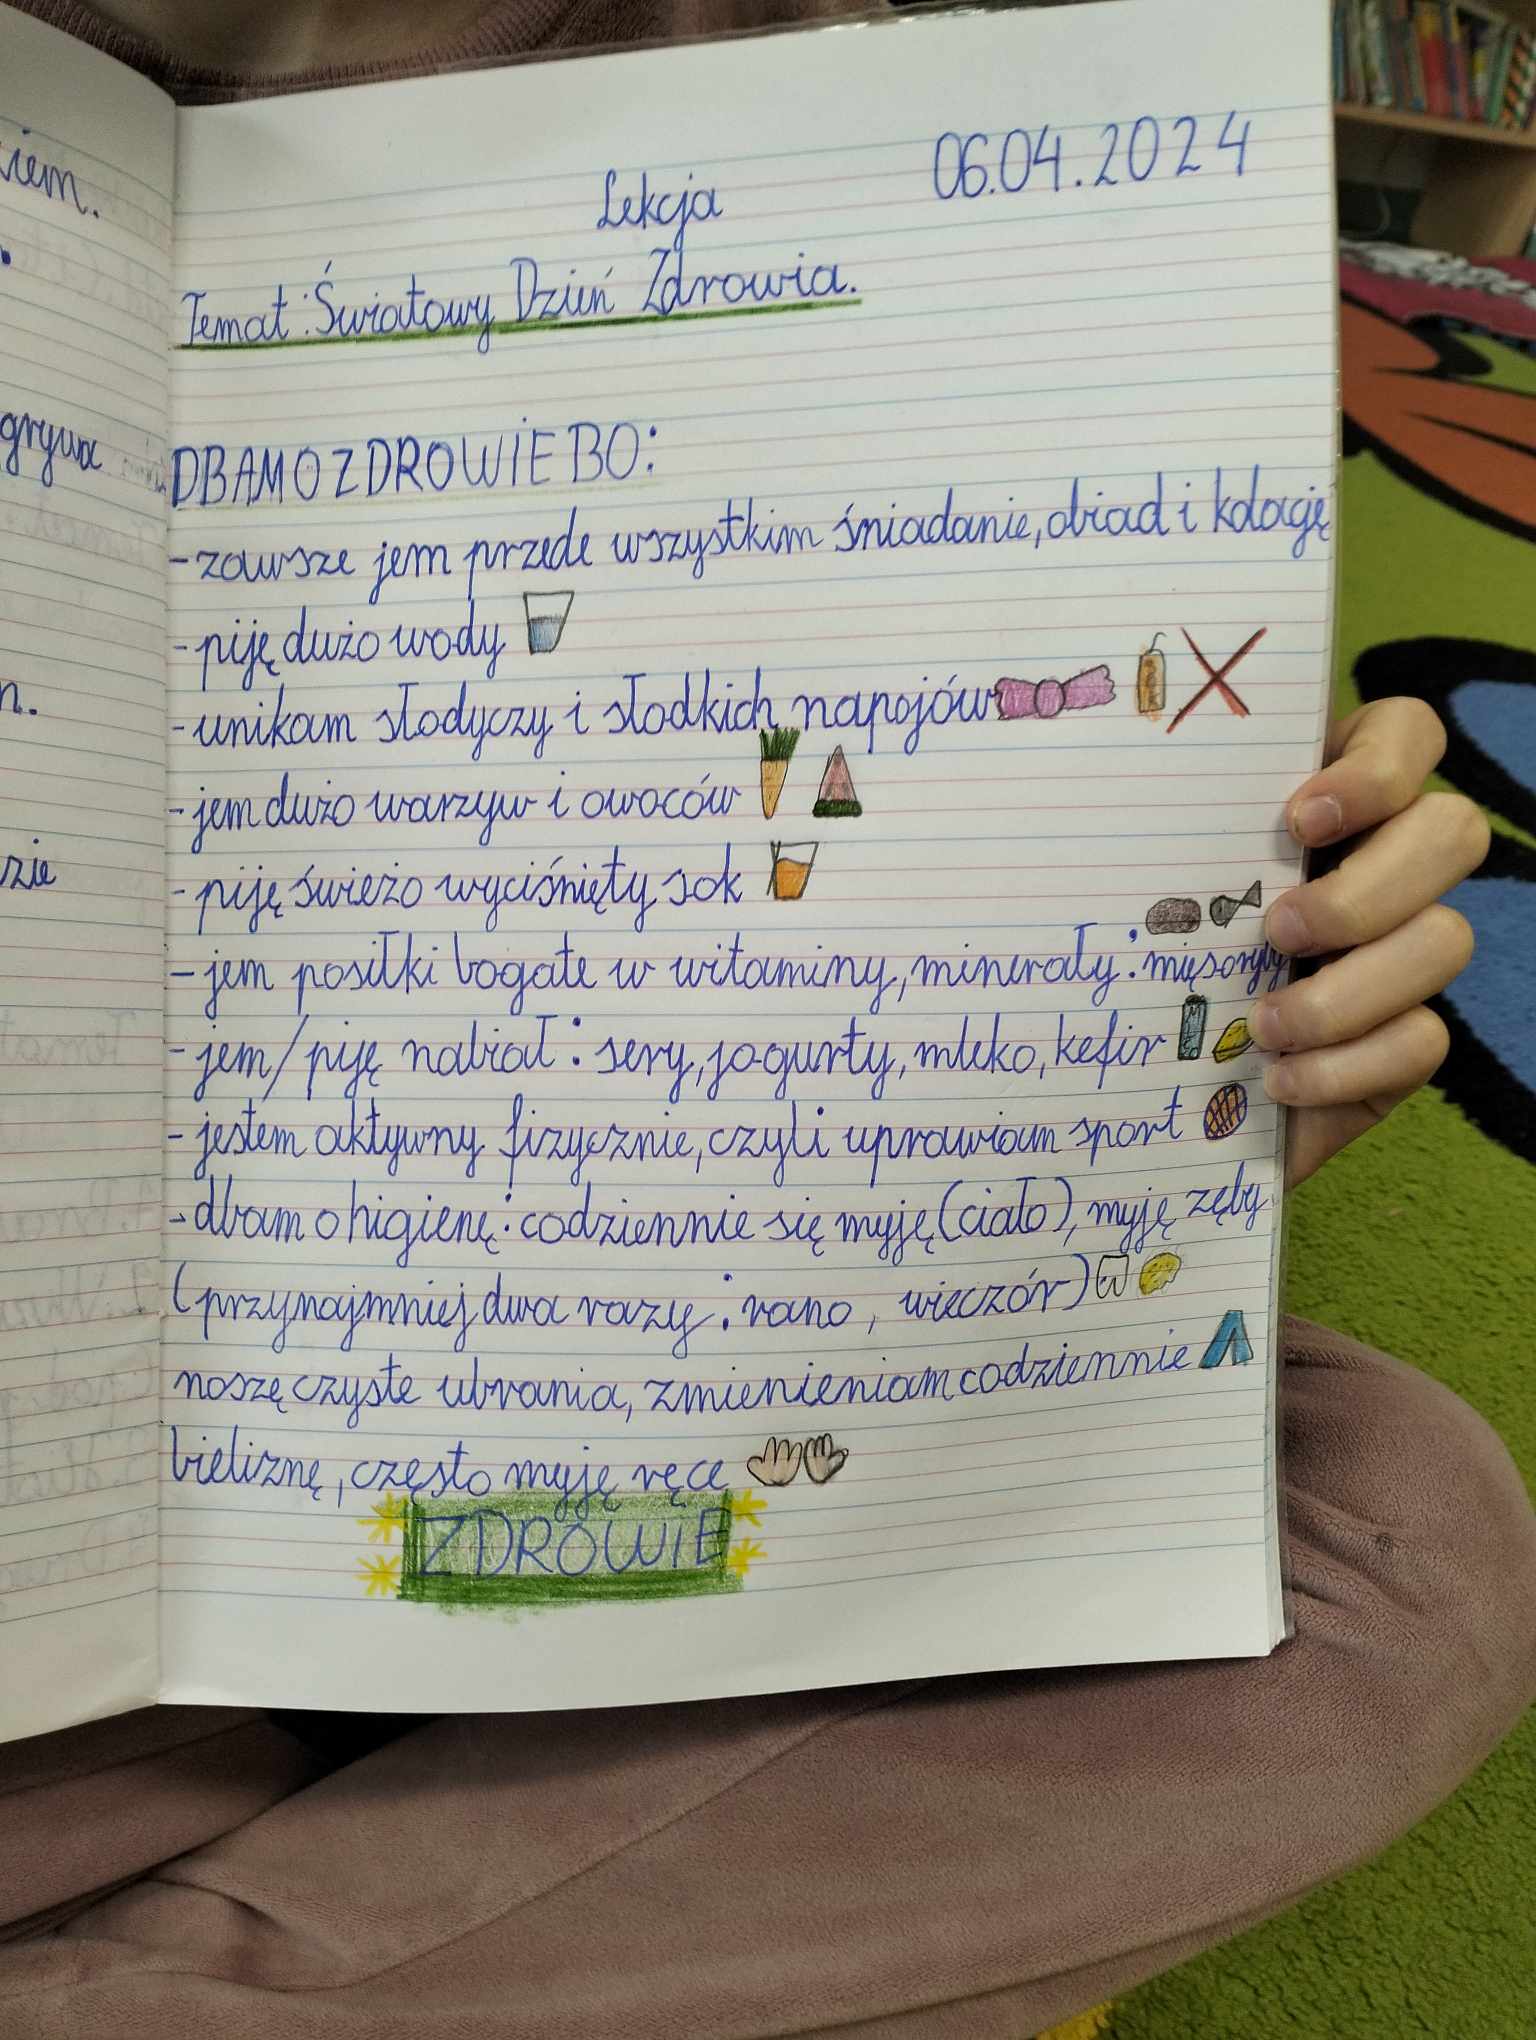 iem.
grywa
n.
zie
Lekcja
06.04.2024
Temat: Światowy Dzień Zdrowia.
DBAM O ZDROWIE BO:
- zawsze jem przede wszystkim śniadanie, obiad i kolację
- piję dużo wody
- unikam słodyczy i słodkich napojów
- jem dużo warzyw i owoców
- piję świeżo wyciśnięty sok
- jem posiłki bogate w witaminy, minerały: mięso ryby
- jem/piję nabiał: sery, jogurty, mleko, kefir
- jestem aktywny fizycznie, czyli uprawiam sport
- dbam o higienę: codziennie się myję (ciało), myję zęby
(przynajmniej dwa razy: rano, wieczór)
noszę czyste ubrania, zmienieniam codziennie
bieliznę, często myję ręce
ZDROWIE